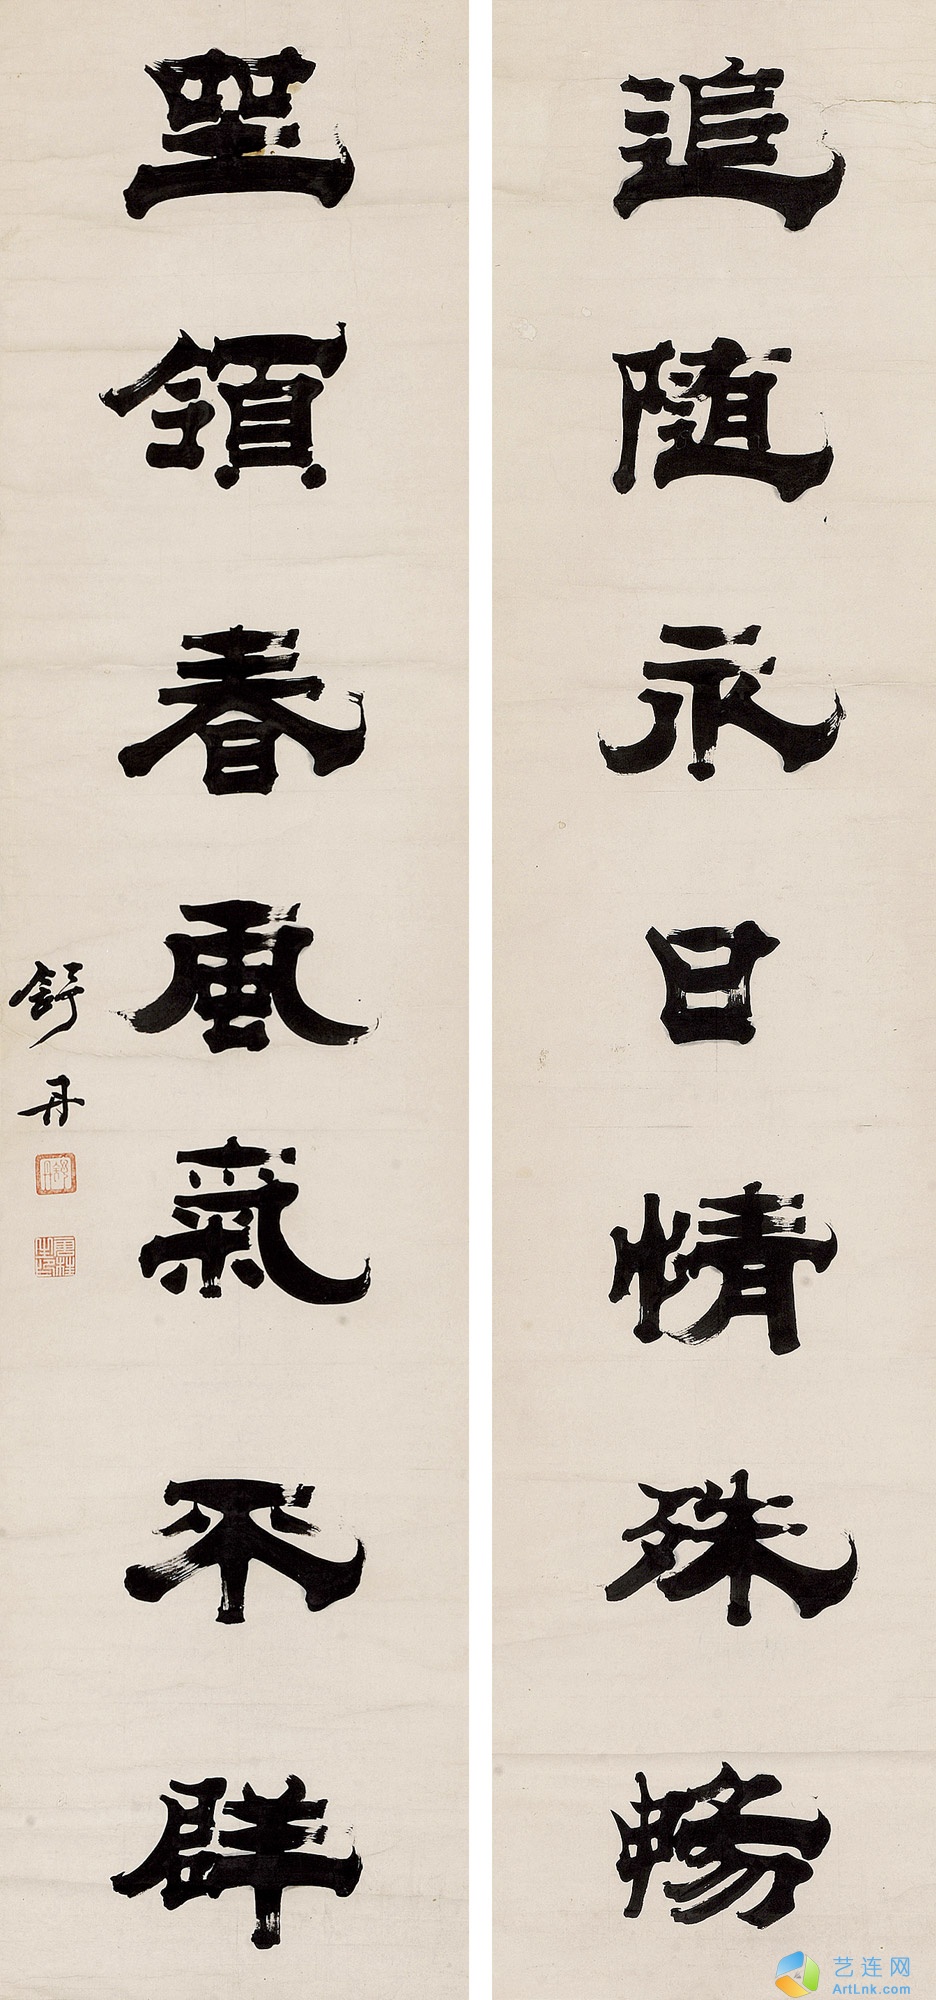 追隨永日情殊暢
坐領春風氣不群
舒丹
艺连网
ArtLnk.com